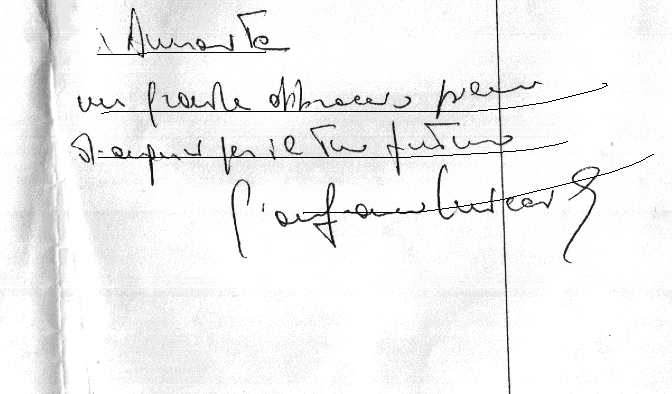 un grande abbraccio pieno
di auguri per il tuo futuro
Gianfranco